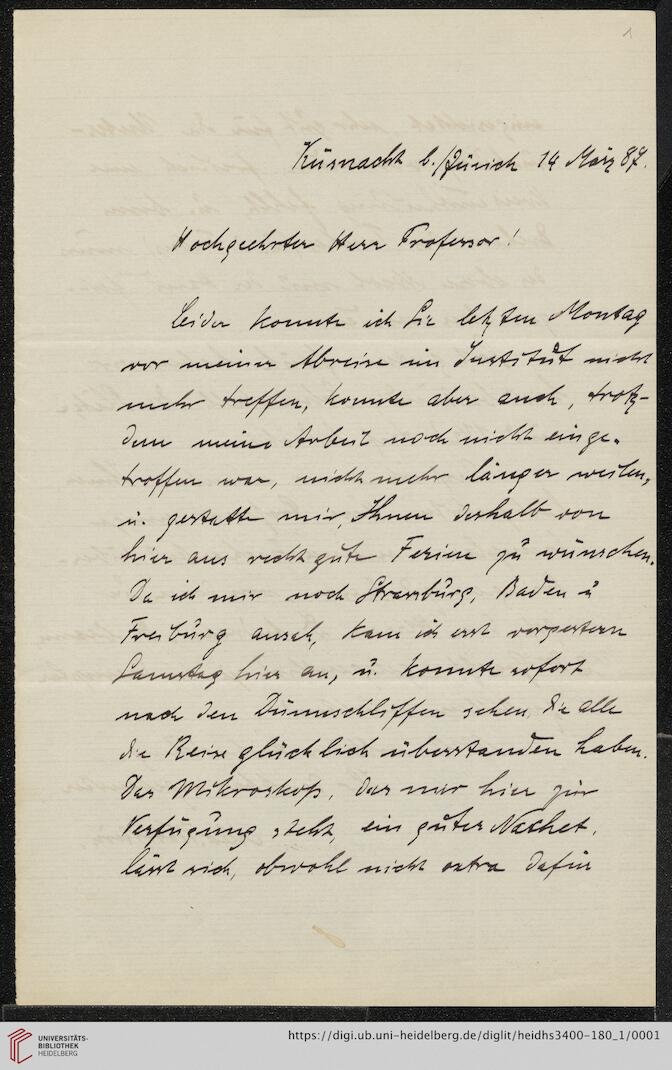 1
Küsnacht b./Zürich 14 März 87.
Hochgeehrter Herr Professor!
Leider konnte ich Sie letzten Montag
vor meiner Abreise im Institut nicht
mehr treffen, konnte aber auch, trotz-
dem meine Arbeit noch nicht einge-
troffen war, nicht mehr länger weilen,
u. gestatte mir, Ihnen deshalb von
hier aus recht gute Ferien zu wünschen.
Da ich mir noch Strassburg, Baden u
Freiburg ansah, kam ich erst vorgestern
Samstag hier an, u. konnte sofort
nach den Dünnschliffen sehen, die alle
die Reise glücklich überstanden haben.
Das Mikroskop, das mir hier zur
Verfügung steht, ein guter Nachet,
lässt sich, obwohl nicht extra dafür
UNIVERSITÄTS-
BIBLIOTHEK
HEIDELBERG
https://digi.ub.uni-heidelberg.de/diglit/heidhs3400-180_1/0001